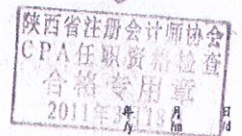 陕西省注册会计师协会
CPA任职资格检查
合格专用章
2011年3月18日
年 月 日